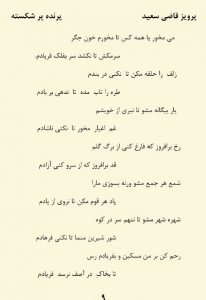 پرویز قاضی سعید
پرنده پر شکسته
می مخور با همه کس تا مخورم خون جگر
سرمکش تا نکشد سر بفلک فریادم.
زلف را حلقه مکن تا نکنی در بندم
طره را تاب مده تا ندهی بر بادم
یار بیگانه مشو تا نبری از خویشم
غم اغیار مخور تا نکنی ناشادم
رخ برافروز که فارغ کنی از برگ گلم
قد برافروز که از سرو کنی آزادم
شمع هر جمع مشو ورنه بسوزی مارا
یاد هر قوم مکن تا نروی از یادم
شهره شهر مشو تا ننهم سر در کوه
شور شیرین منما تا نکنی فرهادم
رحم کن بر من مسکین و بفریادم رس
تا بخاک در آصف نرسد فریادم
۹